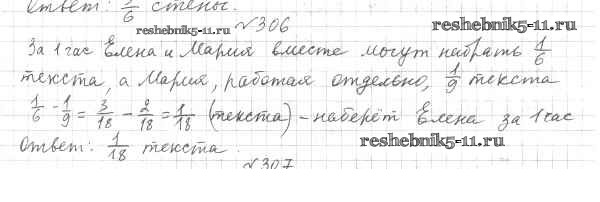 Ответ: 1/6 стены.
reshebnik5-11.ru
№306
reshebnik5-11.ru
За 1 час Елена и Мария вместе могут набрать 1/6
текста, а Мария, работая отдельно, 1/9 текста
1/6 - 1/9 = 3/18 - 2/18 = 1/18 (текста) - наберёт Елена за 1 час
Ответ: 1/18 текста.
reshebnik5-11.ru
№307